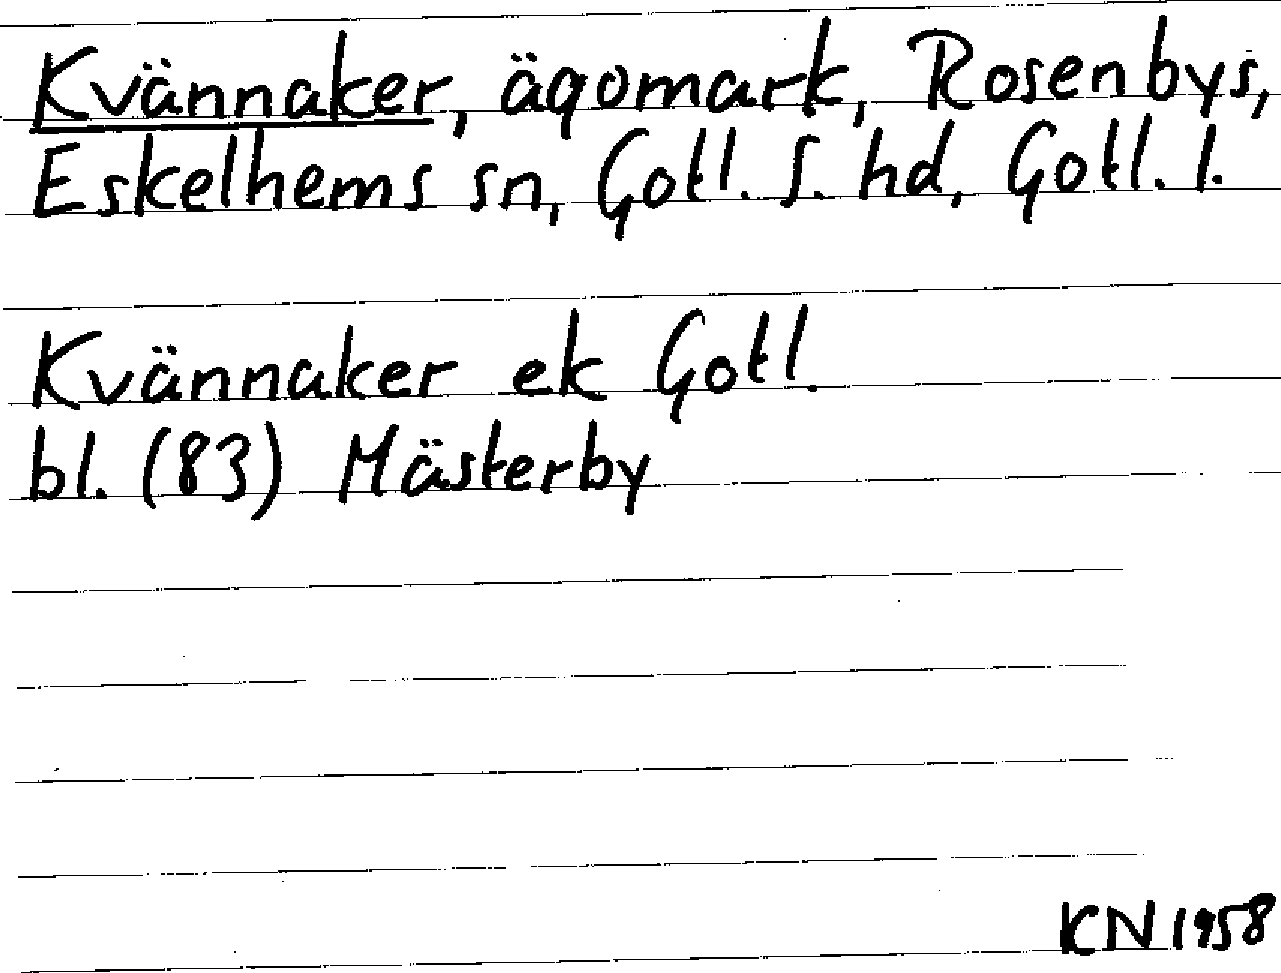 Kvännaker, ägomark, Rosenbys,
Eskelhems sn, Gotl. S. hd, Gotl. l.
Kvännaker ek Gotl.
bl. (83) Mästerby
KN 1958